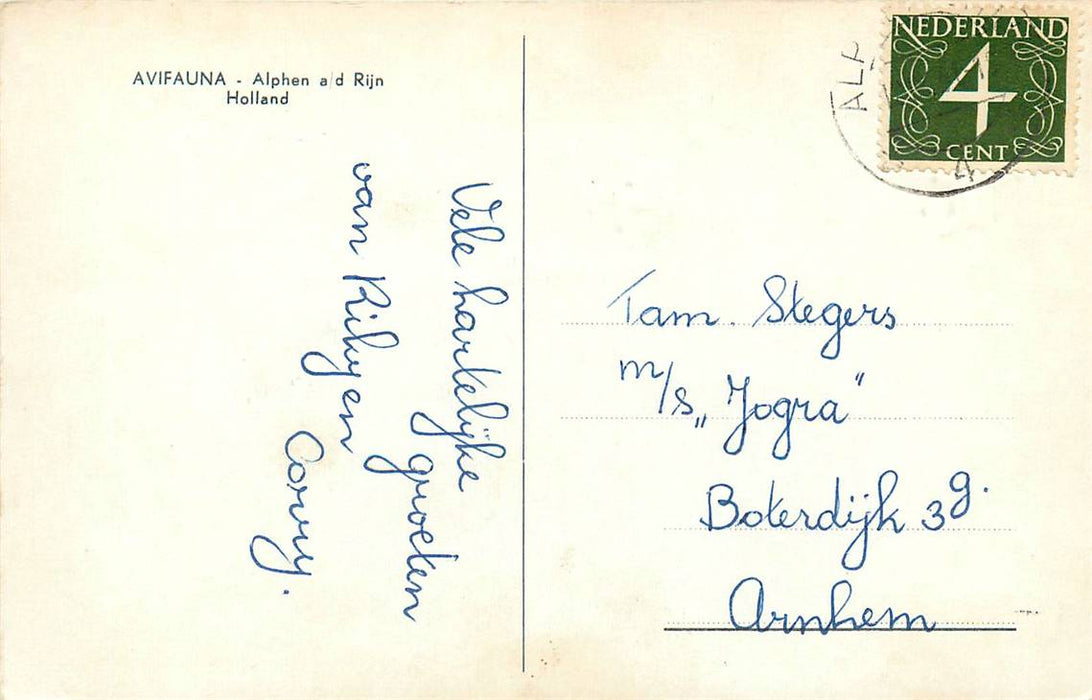 AVIFAUNA - Alphen a/d Rijn
Holland
Vele hartelijke
groeten
van Riky en
Corry.
NEDERLAND
4
CENT
ALP
4
Fam. Stegers
m/s „Jogra"
Boterdijk 3g.
Arnhem